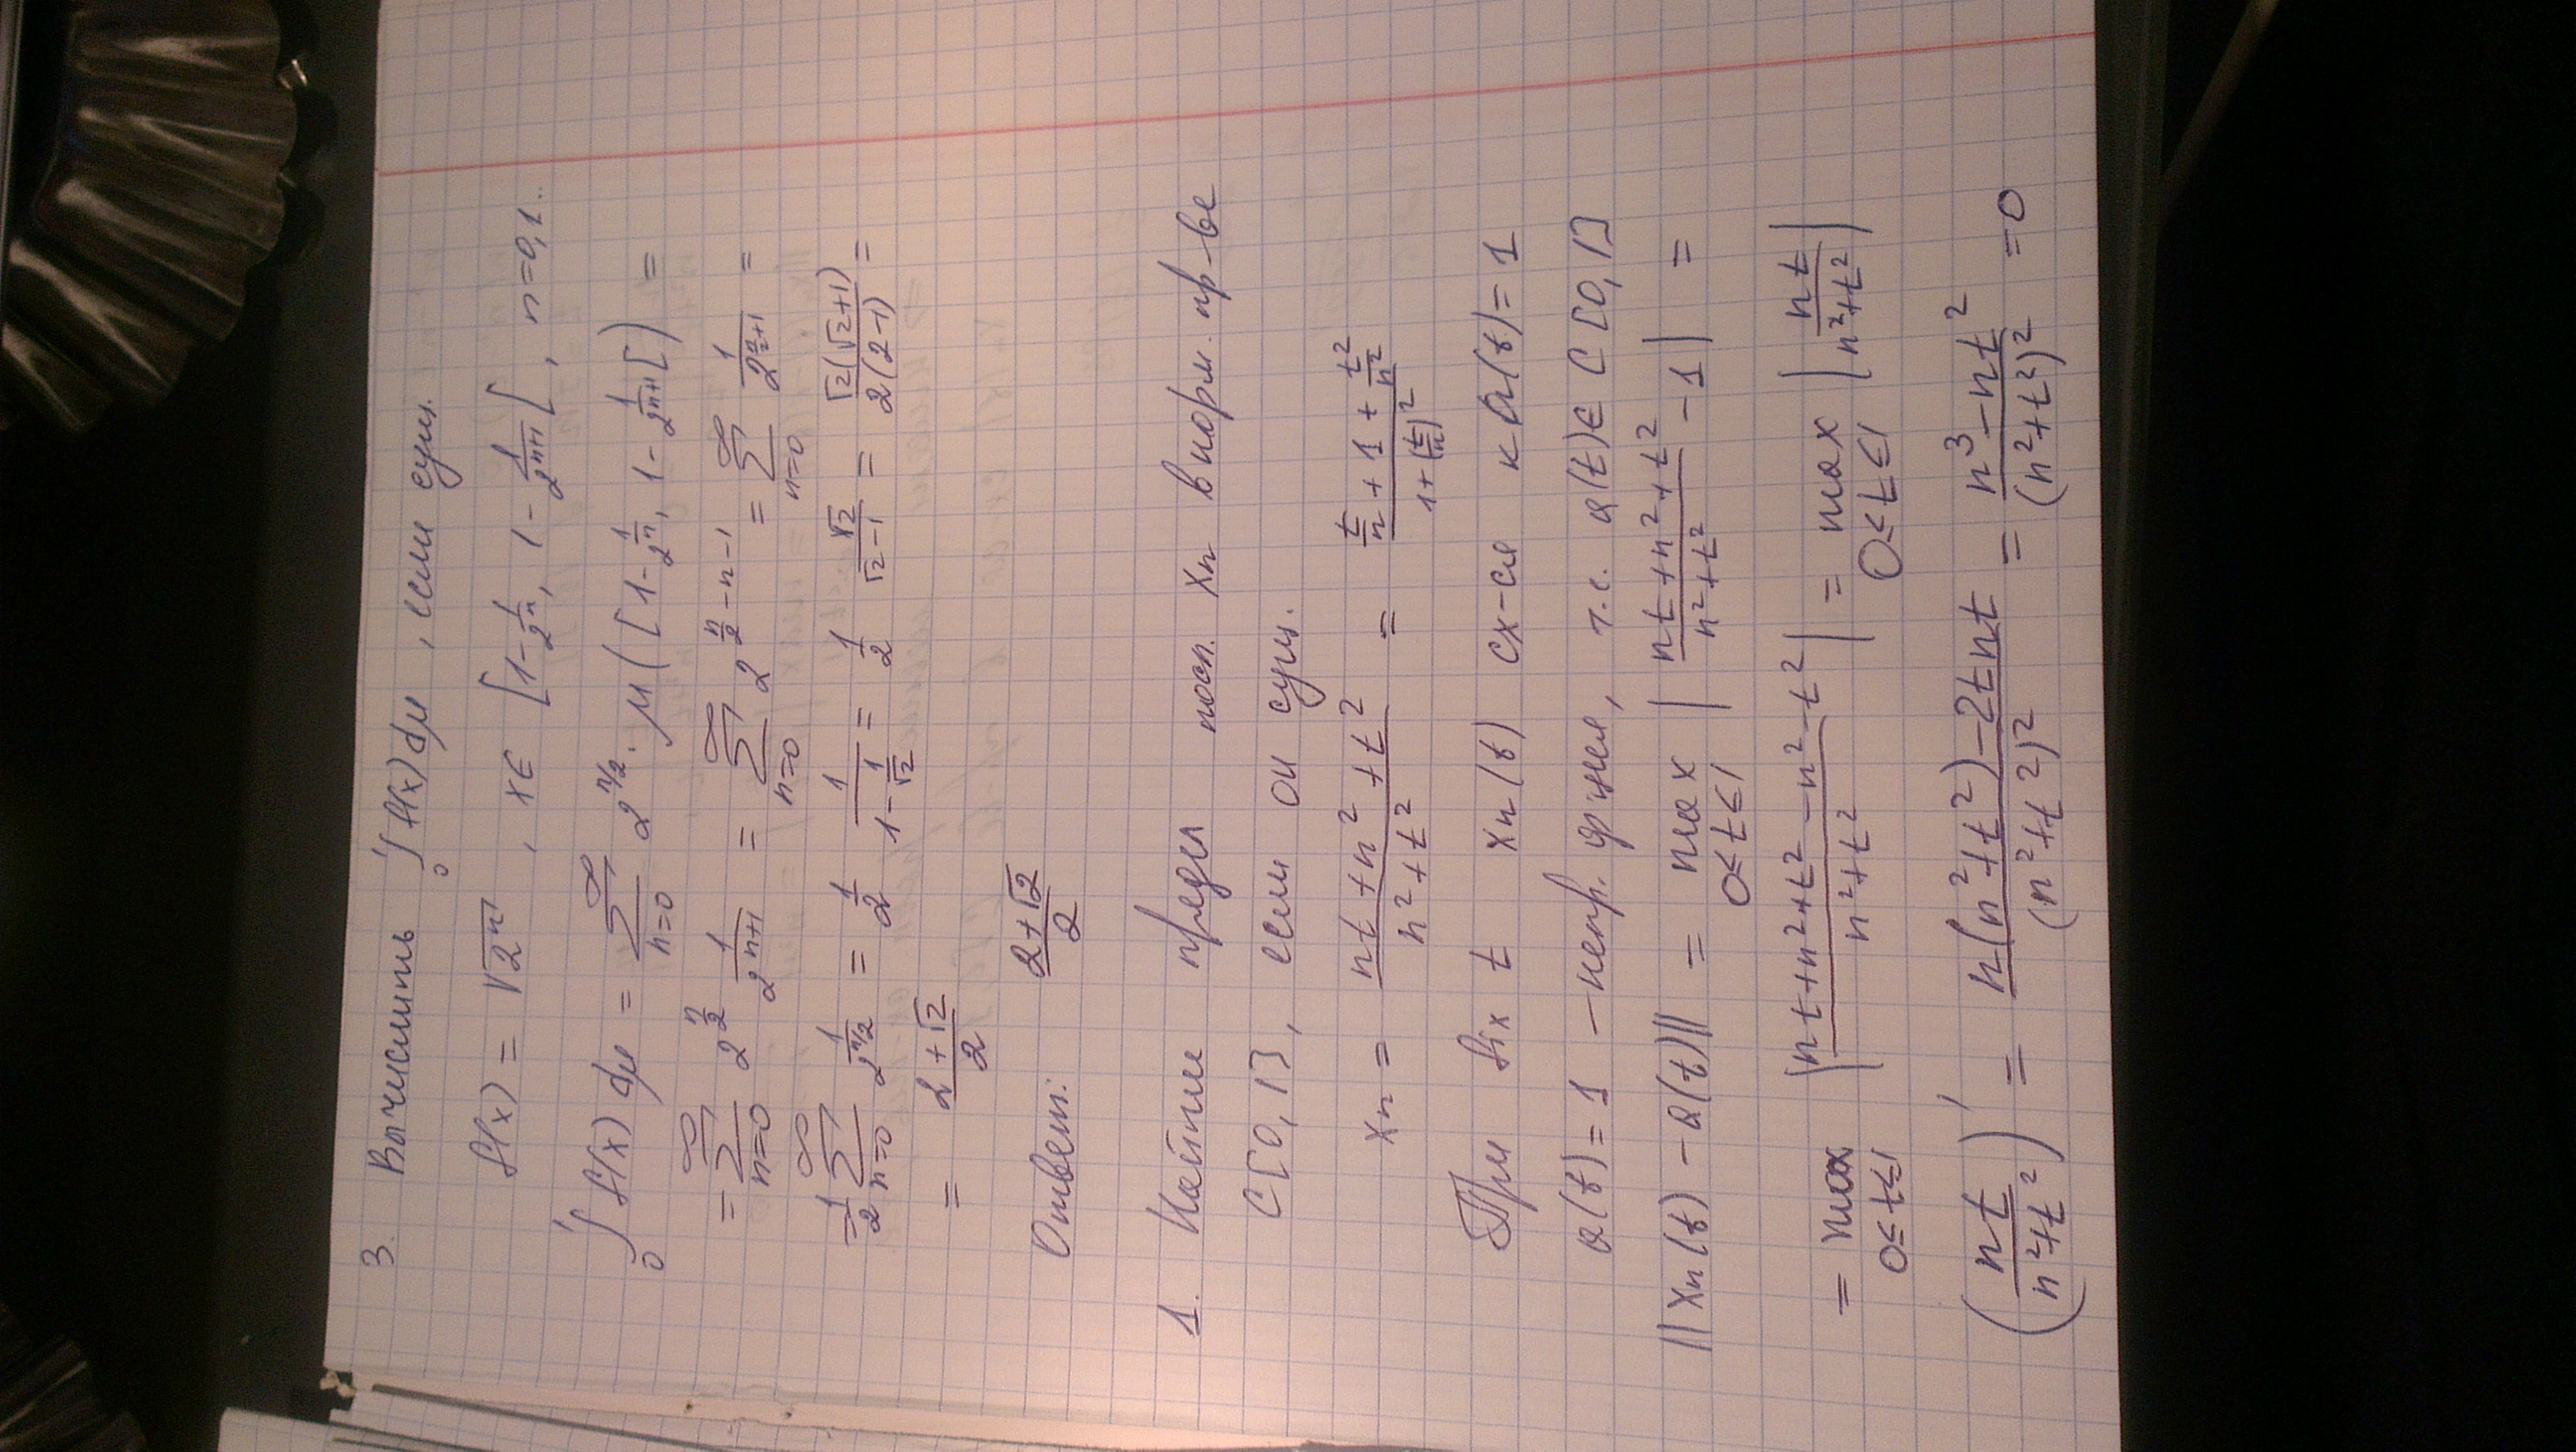 3. Вычислить ∫₀¹ f(x)dμ, если сущ.
f(x) = √2ⁿ, x∈ [1-1/2ⁿ, 1-1/2ⁿ⁺¹[, n=0,1..
∫₀¹ f(x)dμ = ∑_{n=0}^∞ 2^{n/2}·μ([1-1/2ⁿ, 1-1/2ⁿ⁺¹[) =
= ∑_{n=0}^∞ 2^{n/2} 1/2^{n+1} = ∑_{n=0}^∞ 2^{n/2-n-1} = ∑_{n=0}^∞ 1/2^{n/2+1} =
=1/2 ∑_{n=0}^∞ 1/2^{n/2} = 1/2 1/(1-1/√2) = 1/2 √2/(√2-1) = √2(√2+1)/2(2-1) =
= (2+√2)/2
Ответ: (2+√2)/2
1. Найти предел посл. xn в норм. пр-ве
C[0,1], если он сущ.
xn = (nt+n²+t²)/(n²+t²) = (t/n+1+t²/n²)/(1+(t/n)²)
При fix t xn(t) сх-ся к a(t)=1
a(t)=1 -непр. ф-ция, т.е. a(t)∈ C[0,1]
||xn(t)-a(t)|| = max_{0≤t≤1} |(nt+n²+t²)/(n²+t²) -1| =
= max_{0≤t≤1} |(nt+n²+t²-n²-t²)/(n²+t²)| = max_{0≤t≤1} |nt/(n²+t²)|
(nt/(n²+t²))' = (n(n²+t²)-2tnt)/(n²+t²)² = (n³-nt²)/(n²+t²)² =0